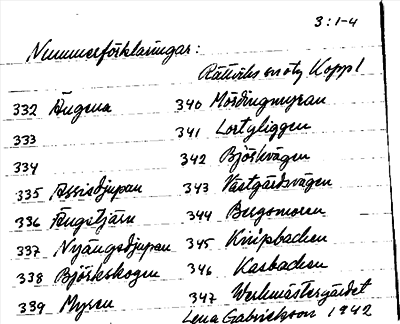 3:1-4
Nummerförklaringar:
Rättviks snöty Koppl
332 Ängena 340 Mördingmyran
333 341 Lortyliggen
334 342 Björkvägen
335 Assisdjupan 343 Västgärdsvägen
336 Ängstjärn 344 Bergsmoren
337 Nyängsdjupan 345 Knipbacken
338 Björkskogen 346 Kasbacken
339 Myren 347 Werkmästergärdet
Lena Gabrielsson 1942